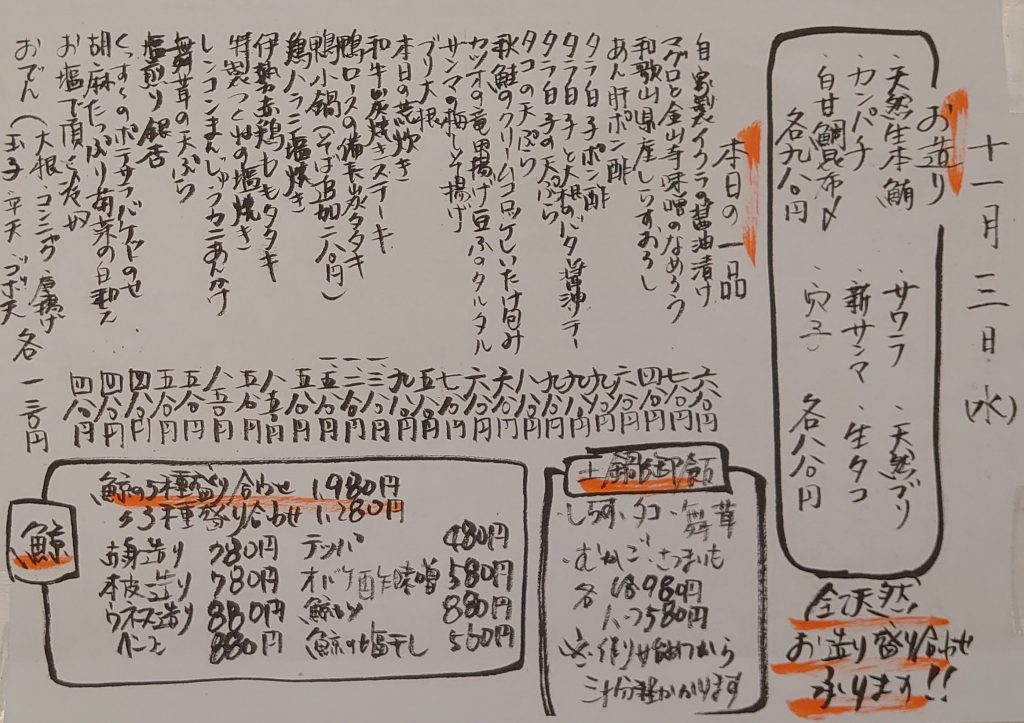 十一月三日(水)
お造り
・天然生本鮪
・カンパチ
・白甘鯛昆布〆
各九八〇円
・サワラ
・新サンマ
・穴子
・天然ブリ
・生タコ
各八八〇円
全天然
お造り盛り合わせ
承ります!!
本日の一品
自家製イクラの醤油漬け 六八〇円
マグロと金山寺味噌のなめろう 七八〇円
和歌山県産しらすおろし 四八〇円
あん肝ポン酢 六八〇円
タラ白子ポン酢 九八〇円
タラ白子と大根のバタ醤油ソテー 九八〇円
タラ白子の天ぷら 九八〇円
タコの天ぷら 八八〇円
秋鮭のクリームコロッケしいたけ包み 六八〇円
カツオの竜田揚げ豆ふのタルタル 六八〇円
サンマの梅しそ揚げ 七八〇円
ブリ大根 五八〇円
本日の荒炊き 九八〇円
和牛炭焼きステーキ
鴨ロースの備長炭タタキ
鴨小鍋(そば追加二八〇円)
鶏ハラミ塩焼き 五八〇円
伊勢赤鶏ももタタキ 八五〇円
特製つくねの塩焼き 五八〇円
レンコンまんじゅうカニあんかけ 八五〇円
舞茸の天ぷら 五八〇円
塩煎り銀杏 五八〇円
くんせいのポテサラバケットのせ 四八〇円
胡麻たっぷり菊菜の白和え 四八〇円
お塩で頂く冷奴 四八〇円
おでん(大根・コンニャク・厚揚げ
玉子・平天・ゴボ天 各一三〇円
土鍋御飯
・しらす・タコ・舞茸
・むかご・さつまいも
各 1合980円
ハーフ580円
※作り始めてから
三十分程かかります
鯨
鯨の5種盛り合わせ 1,980円
〃3種盛り合わせ 1,280円
赤身造り 780円
本皮造り 780円
ウネス造り 880円
ベーコン 880円
テッパ 480円
オバケ酢味噌 580円
鯨カツ 880円
鯨の塩干し 560円